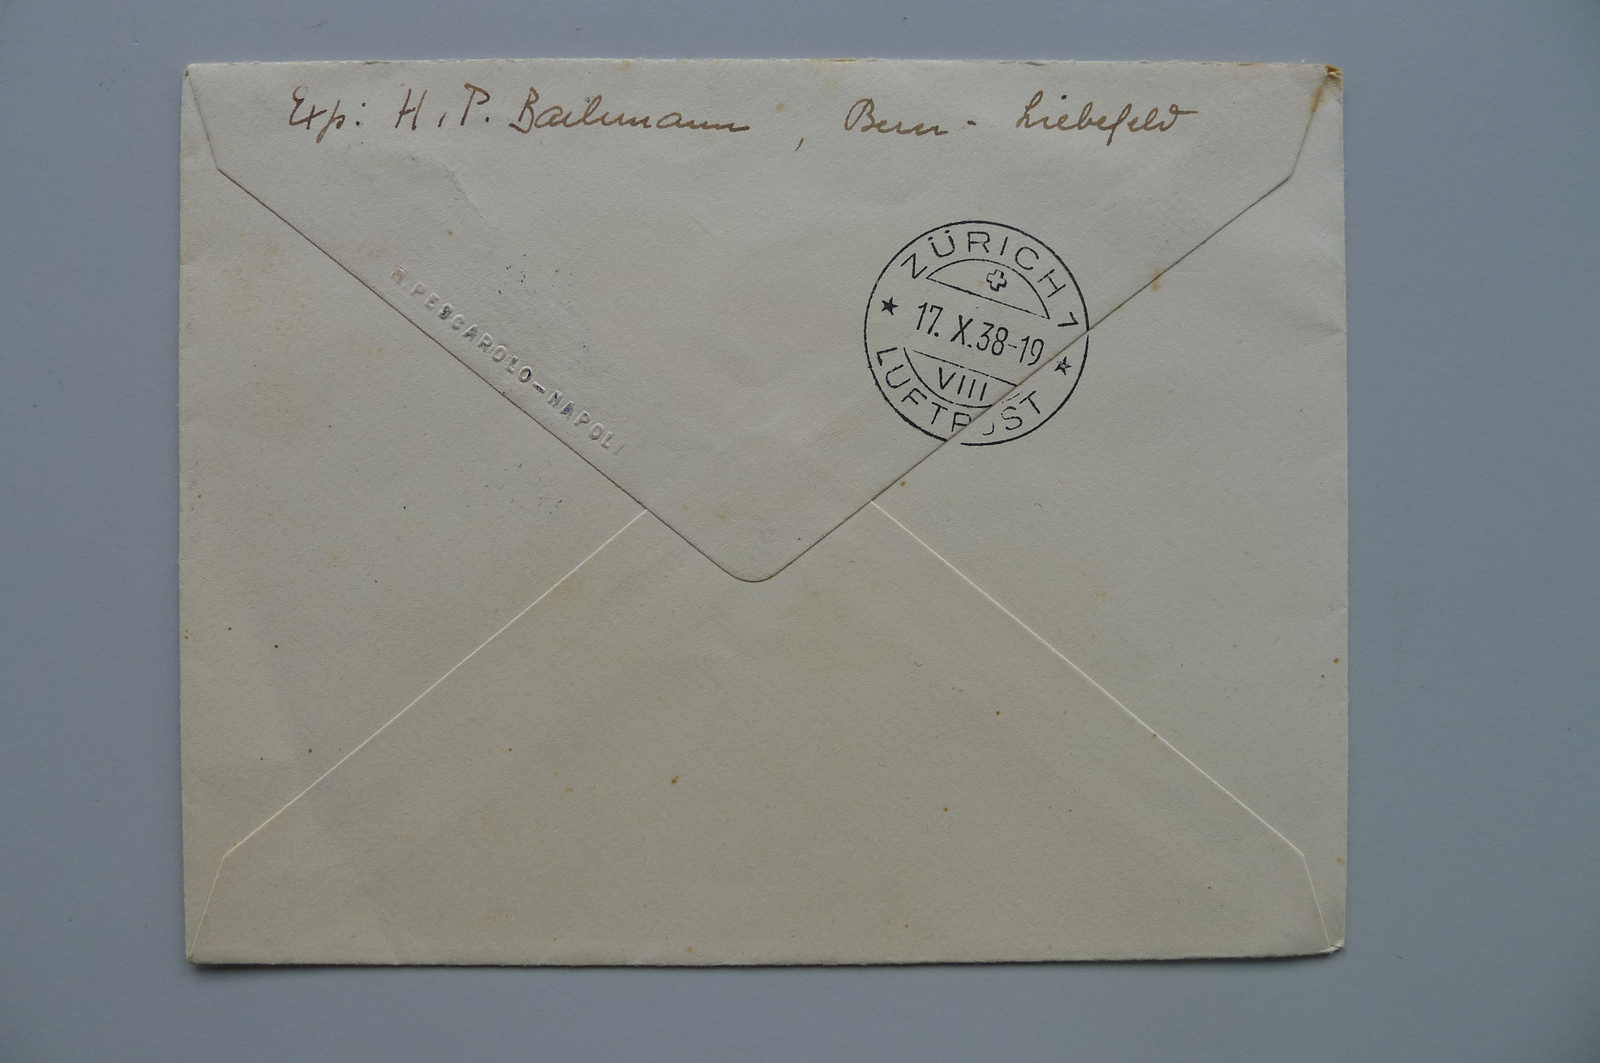 Exp: H. P. Bachmann, Bern - Liebefeld
ZÜRICH 1
17. X.38-19
VIII
LUFTPOST
R. PESCAROLO-NAPOLI